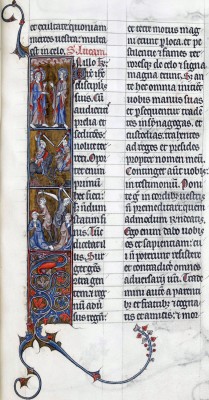 et exultate quoniam
merces uestra multa
est in celo. S. Lucam.
Jn illo
discipulis
suis. Cum
audieritis
prelia et
seditiones
nolite
reri. Opor
tet enim
primum
hec fieri.
nondum
statim fi
nis. Tunc
dicebat il
lis. Surget
gens
gentem et
et terre motus mag
ni erunt p loca. et pe
stilentie et fames ter
roresq; de celo et signa
magna erunt. Sed an
te hec omnia inicient
uobis manus suas
et psequentur traden
tes in synagogas. et
custodias. trahentes
ad reges et presides
propter nomen meum.
Continget autem uobis
in testimonium. Poni
te g in cordibus uestris
non premeditari quem
admodum respondeatis.
Ego enim dabo uobis
os et sapientiam. cui
non poterunt resistere
et contradicere omnes
aduersarii uestri. Trade
mini autem a parenti
bus et fratribus et cogna
tis et amicis. et mor